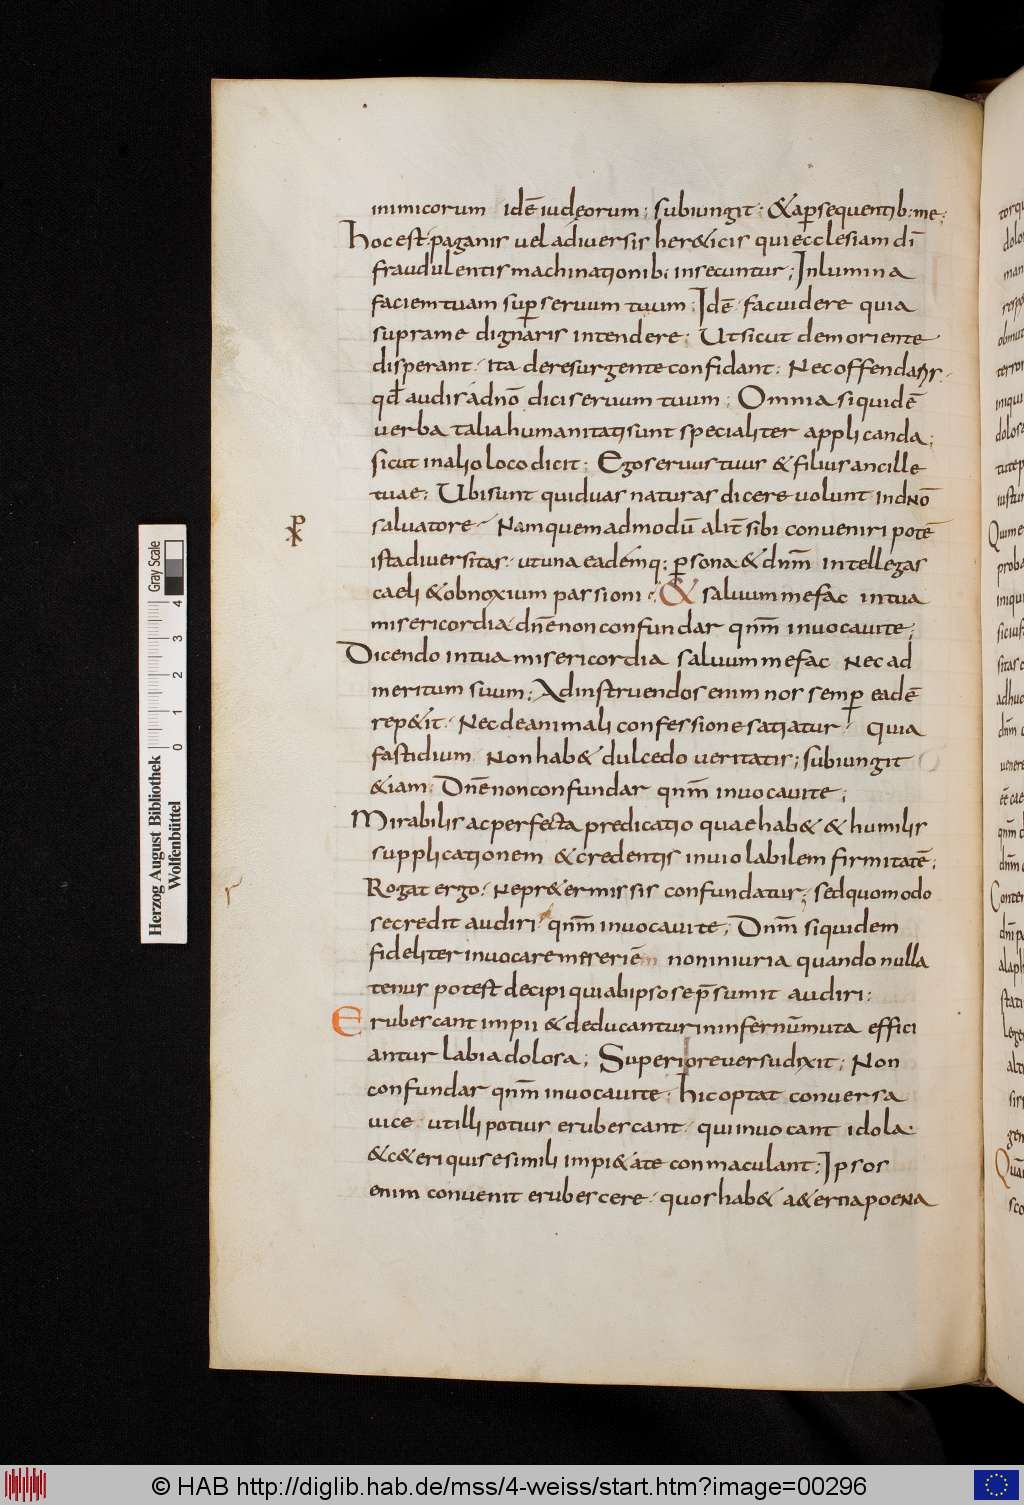 inimicorum idē iudęorum; subiungit; & a p̱sequentib; me;
hoc est paganis vel a diversis her&icis qui ecclesiam dī
fraudulentis machinationib; insecuntur; Inlumina
faciem tuam sup̱ servum tuum; Idē fac videre quia
supra me dignaris intendere; Ut sicut de moriente
disperant ita de resurgente confidant; Nec offendat
qđ audis a dnō dici servum tuum; Omnia siquidē
verba talia humanitati sunt specialiter applicanda;
sicut in alio loco dicit; Ego servus tuus & filius ancille
tuae; Ubi sunt qui duas naturas dicere volunt in dnō
salvatore Nam quemadmodū alit̄ sibi conveniri potē
ista diversitas ut una eademq; p̱sona & dnm̄ intellegas
caeli & obnoxium passioni; & salvum me fac in tua
misericordia dnē non confundar qnm̄ invocavi te;
Dicendo in tua misericordia salvum me fac Nec ad
meritum suum; Ad instruendos enim nos semp̱ eadē
rep&it Nec de animali confessione satiatur quia
fastidium Non hab& dulcedo veritatis; subiungit
&iam; Dnē non confundar qnm̄ invocavi te;
Mirabilis ac perfecta predicatio quae hab& & humilis
supplicationem & credentis inviolabilem firmitatē;
Rogat ergo; Ne pr&ermissis confundatur; sed quomodo
se credit audiri qnm̄ invocavi te; Dnm̄ siquidem
fideliter invocare mereriē non iniuria quando nulla
tenus potest decipi qui ab ipso se p̄sumit audiri;
Erubescant impii & deducantur in infernū muta effici
antur labia dolosa; Superiore versu dixit; Non
confundar qnm̄ invocavi te; hic optat conversa
vice ut illi potius erubescant qui invocant idola
& c&eri qui se simili impi&ate conmaculant; Ipsos
enim convenit erubescere quos hab& a&erna poena
Herzog August Bibliothek
Wolfenbüttel
0 1 2 3 4
Gray Scale
© HAB http://diglib.hab.de/mss/4-weiss/start.htm?image=00296